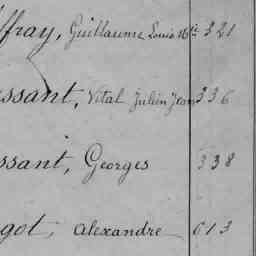 ffray, Guillaume Louis M.ie 321
ssant, Vital Julien Jean 336
ssant, Georges 338
got, Alexandre 613